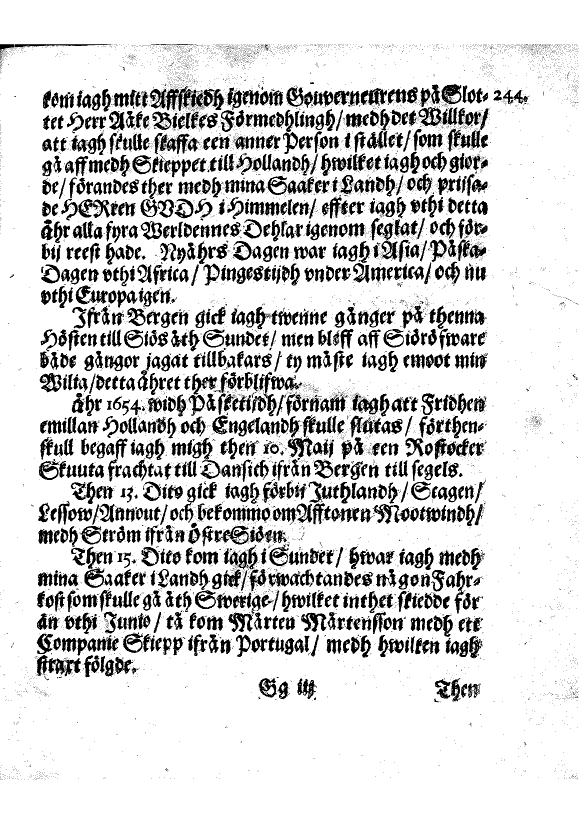 kom iagh mitt Affskiedh igenom Gouverneurens på Slot- 244.
tet Herr Aäke Bielkes Förmedhlingh/ medh det Willkor/
att iagh skulle skaffa een anner Person i stället/ som skulle
gå aff medh Skieppet till Hollandh/ hwilket iagh och gior-
de/ förandes ther medh mina Saaker i Landh/ och prijsa-
de HERren GUDH i Himmelen/ effter iagh vthi detta
åhr alla fyra Werldennes Dehlar igenom seglat/ och för-
bij reest hade. Nyåhrs Dagen war iagh i Asia/ Påska-
Dagen vthi Africa/ Pingestijdh vnder America/ och nu
vthi Europa igen.
Ifrån Bergen gick iagh twenne gånger på thenna
Hösten till Siös åth Sundet/ men bleff aff Siöröfware
både gångor jagat tillbakars/ ty måste iagh emoot min
Wilia/ detta åhret ther förblifwa.
Åhr 1654. widh Påsketijdh/ förnam iagh att Fridhen
emillan Hollandh och Engelandh skulle slutas/ förthen-
skull begaff iagh migh then 10. Maij på een Rostocker
Skuuta frachtat till Dansich ifrån Bergen till segels.
Then 13. Dito gick iagh förbij Juthlandh/ Skagen/
Lessow/ Annout/ och bekommo om Afftonen Mootwindh/
medh Ström ifrån Östre Siön.
Then 15. Dito kom iagh i Sundet/ hwar iagh medh
mina Saaker i Landh gick/ förwachtandes någon Fahr-
kost som skulle gå åth Swerige/ hwilket inthet skiedde för
än vthi Junio/ tå kom Mårten Mårtensson medh ett
Companie Skiepp ifrån Portugal/ medh hwilken iagh
straxt fölgde.
Gg iij Then